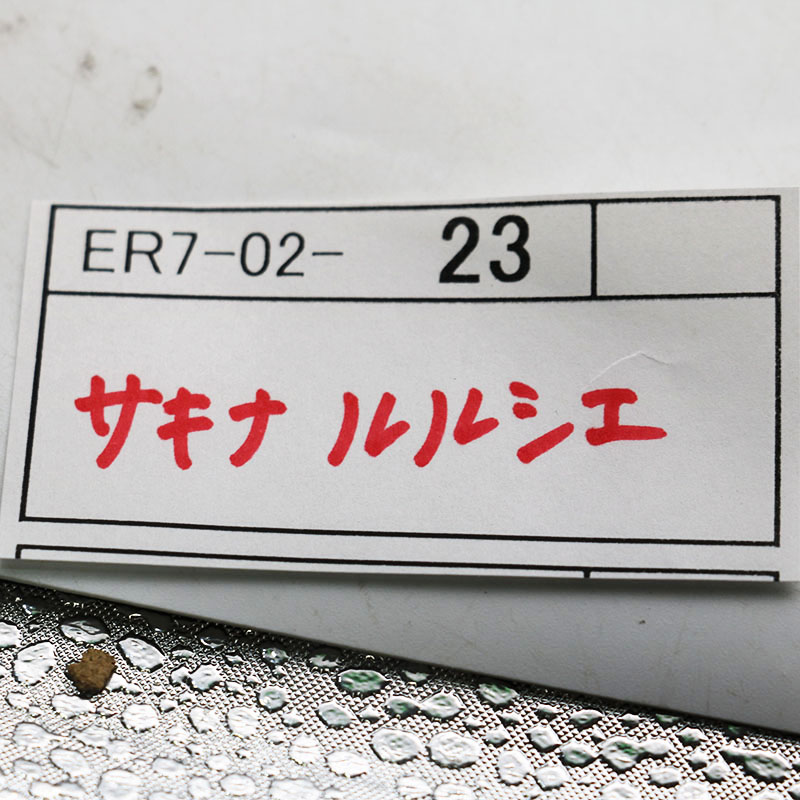 ER7-02- 23
サキナ ルルシエ